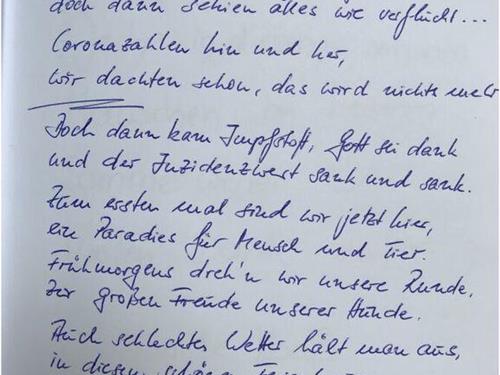 doch dann schien alles wie verflucht...
Coronazahlen hin und her,
wir dachten schon, das wird nichts mehr
Doch dann kam Impfstoff, Gott sei dank
und der Inzidenzwert sank und sank.
Zum ersten mal sind wir jetzt hier,
ein Paradies für Mensch und Tier.
Frühmorgens dreh'n wir unsere Runde,
zur großen Freude unserer Hunde.
Auch schlechtes Wetter hält man aus,
in diesem schönen